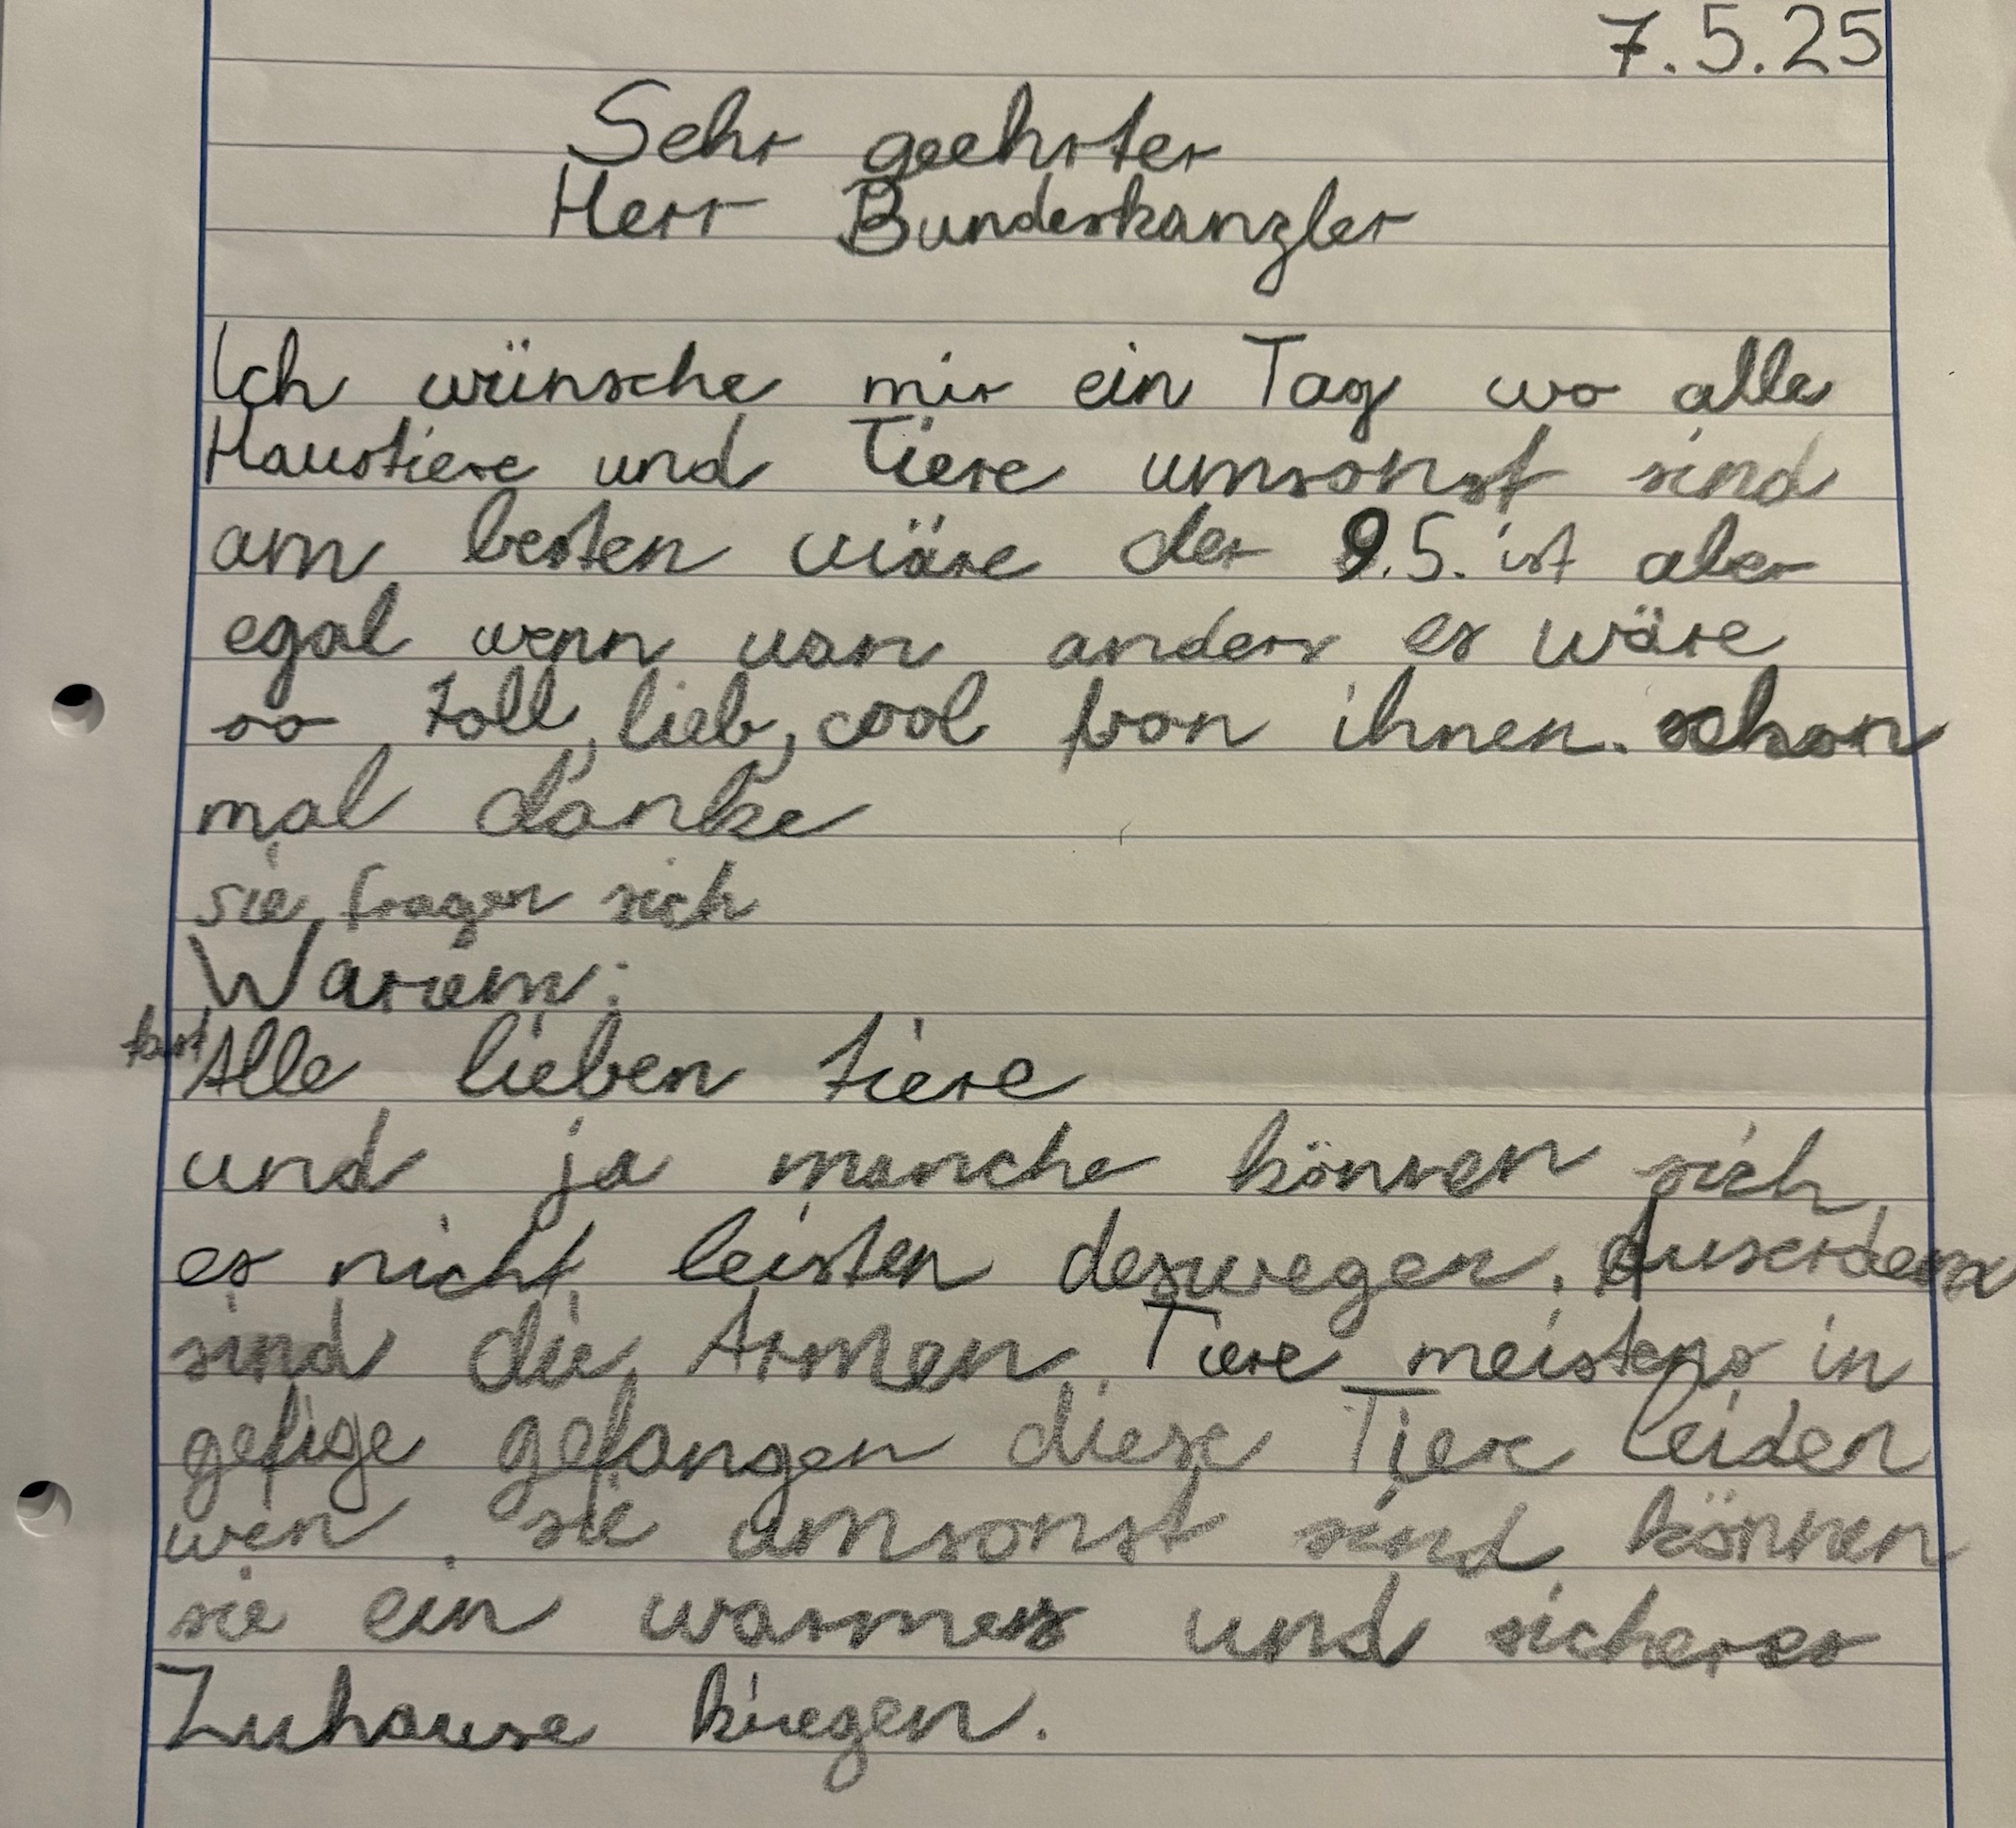 7.5.25
Sehr geehrter
Herr Bundeskanzler
Ich wünsche mir ein Tag wo alle
Haustiere und Tiere umsonst sind
am besten wäre der 9.5. ist aber
egal wenn wan anders es wäre
so toll, lieb, cool von ihnen. schon
mal danke
sie fragen sich
Warum:
fast Alle lieben tiere
und ja manche können sich
es nicht leisten deswegen. Auserdem
sind die Armen Tiere meistens in
gefige gefangen diese Tiere leiden
wen sie umsonst sind können
sie ein warmes und sicheres
Zuhause kriegen.